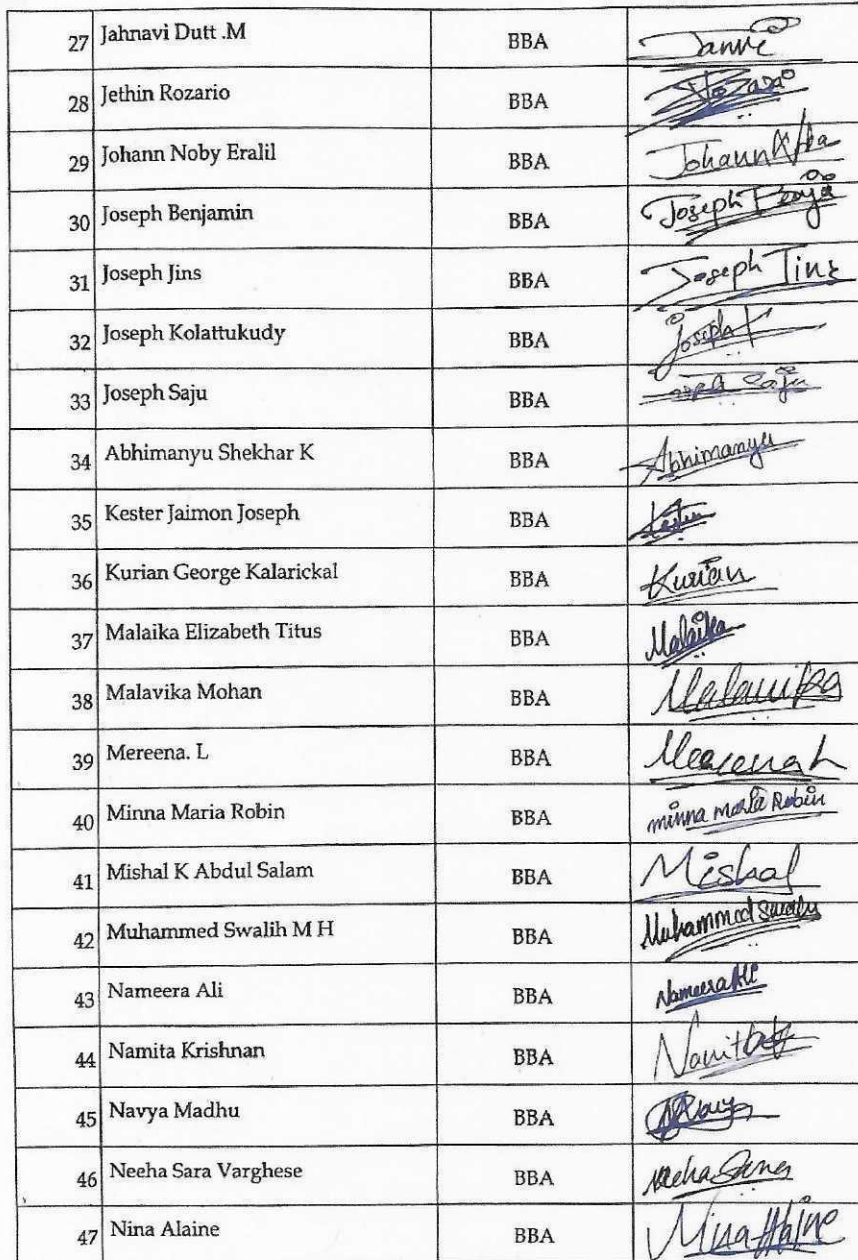 27 Jahnavi Dutt .M BBA
28 Jethin Rozario BBA
29 Johann Noby Eralil BBA Johann
30 Joseph Benjamin BBA Joseph
31 Joseph Jins BBA Joseph Jins
32 Joseph Kolattukudy BBA Joseph K
33 Joseph Saju BBA Joseph Saju
34 Abhimanyu Shekhar K BBA Abhimanyu
35 Kester Jaimon Joseph BBA
36 Kurian George Kalarickal BBA Kurian
37 Malaika Elizabeth Titus BBA Malaika
38 Malavika Mohan BBA Malavika
39 Mereena. L BBA
40 Minna Maria Robin BBA minna maria Robin
41 Mishal K Abdul Salam BBA Mishal
42 Muhammed Swalih M H BBA Muhammed Swalih
43 Nameera Ali BBA Nameera Ali
44 Namita Krishnan BBA
45 Navya Madhu BBA
46 Neeha Sara Varghese BBA Neeha Sara
47 Nina Alaine BBA Nina Alaine